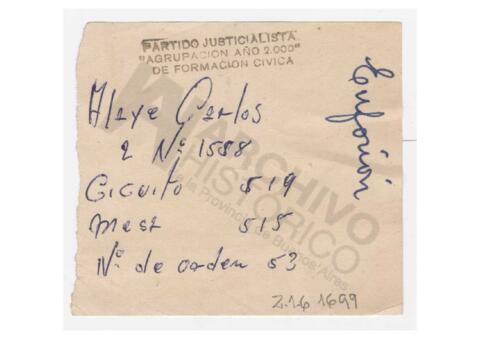 PARTIDO JUSTICIALISTA
"AGRUPACION AÑO 2.000"
DE FORMACION CIVICA
Carlos
2 Nº 1588
Circuito 519
Mesa 515
Nº de orden 53
2.1.6 1699
ARCHIVO
HISTÓRICO
de la Provincia de Buenos Aires